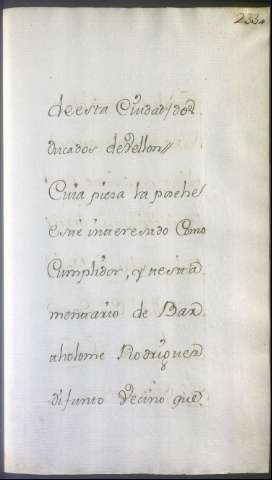 233
de esta Ciudad dos
ducados de Vellon//
Cuia pieza la posehe
este interesado Como
Cumplidor, y testa
mentario de Bar
tholome Rodriguez
difunto Vecino que